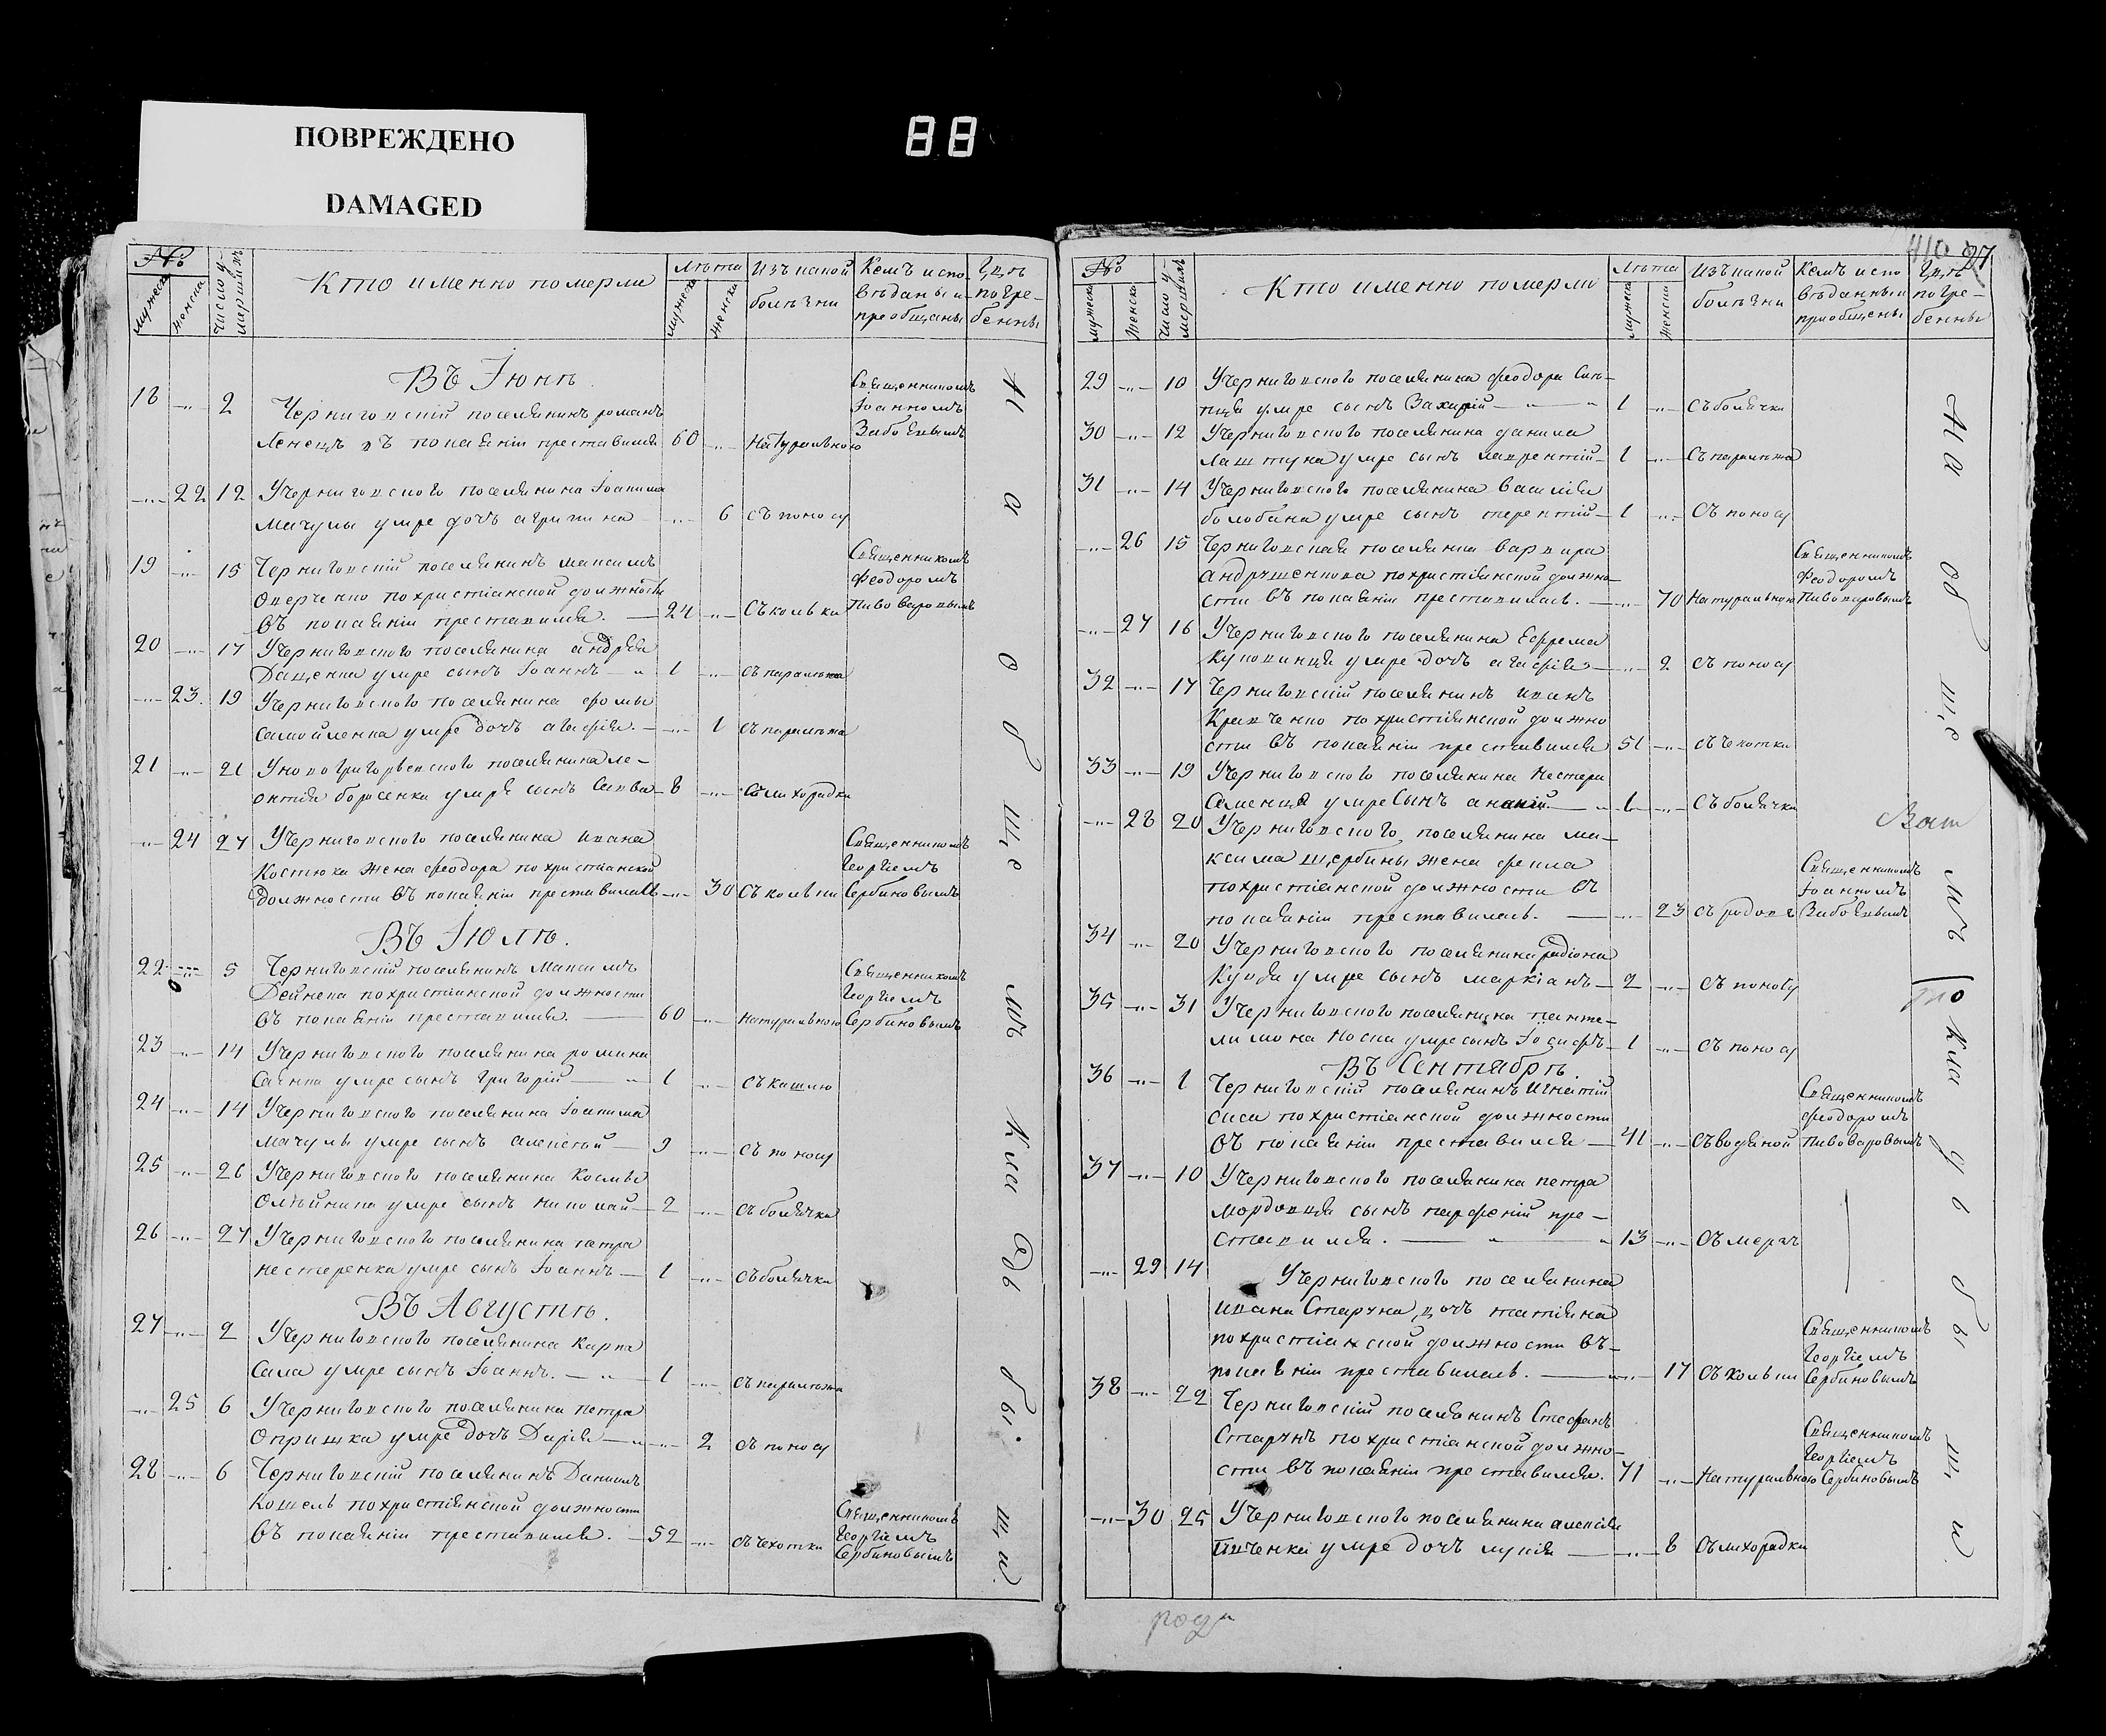 ПОВРЕЖДЕНО
DAMAGED
88
№
мужеска
женска
число умершихъ
Кто именно померли
Лѣта
мужеска
женска
Изъ какой болѣзни
Кемъ исповѣданы и преобщены
Гдѣ погребенны
Въ Іюнѣ
18 -"- 2 Черниговскій поселянинъ романъ
Ленецъ въ покаяніи преставился 60 -"- Натуральною
Священникомъ
Іоанномъ
22 12 Учерниговского поселянина Іоакима
Мачулы умре дочь агрипина -"- 6 съ поносу
19 -"- 15 Черниговскій поселянинъ максимъ
Оверченко похристіанской должности
въ покаяніи преставился. 24 -"- Съ кольки
Священникомъ
Феодоромъ
Пивоваровымъ
20 -"- 17 Учерниговского поселянина андрея
Даценка умре сынъ Іоаннъ -"- 1 -"- съ паралѣжа
-"- 23. 19 Учерниговского поселянина фомы
самойленка умре дочь агафія. -"- 1 съ паралѣжа
21 -"- 21 Уновогригорьевского поселянина ле-
онтія борисенка умре сынъ Савва 8 -"- Съ лихорадки
-"- 24 27 Учерниговского поселянина ивана
Костюка жена феодора похристіанской
должности въ покаяніи преставилась -"- 30 Съ кольки
Священникомъ
Георгіемъ
Сербиновымъ
Въ Іюлѣ.
22 -"- 5 Черниговскій поселянинъ Максимъ
Дейнека похристіанской должности
въ покаяніи преставился. 60 -"- Натуральною
Священникомъ
Георгіемъ
Сербиновымъ
23 -"- 14 Учерниговского поселянина романа
Саенка умре сынъ григорій -"- 1 -"- съ кашлю
24 -"- 14 Учерниговского поселянина Іоакима
мачулы умре сынъ алексѣй 9 -"- съ поносу
25 -"- 26 Учерниговского поселянина Космы
Олѣйника умре сынъ николай 2 -"- съ болячки
26 -"- 27 Учерниговского поселянина петра
нестеренка умре сынъ Іоаннъ 1 -"- съ болячки
Въ Августѣ.
27 -"- 2 Учерниговского поселянина Карпа
Сала умре сынъ Іоаннъ. -"- 1 -"- съ паралѣжа
-"- 25 6 Учерниговского поселянина петра
Опришка умре дочь Дарія -"- 2 съ поносу
28 -"- 6 Черниговскій поселянинъ Даниилъ
Кошель похристіянской должности
въ покаяніи преставился. 52 -"- съ чехотки
Священникомъ
Георгіемъ
Сербиновымъ
На общемъ кладбыщи.
410 27
№
мужеска
женска
число умершихъ
Кто именно померли
Лѣта
мужеска
женска
Изъ какой болѣзни
Кемъ исповѣданны и приобщены
Гдѣ погребенны
29 -"- 10 Учерниговского поселянина феодора
умре сынъ Захарій -"- 1 -"- Съ болячки
30 -"- 12 Учерниговского поселянина данила
Лаштуна умре сынъ лаврентій 1 -"- Съ паралѣжа
31 -"- 14 Учерниговского поселянина василія
болобана умре сынъ терентій 1 -"- Съ поносу
-"- 26 15 Черниговская поселянка варвара
андрушенкова похристіянской должно-
сти въ покаяніи преставилась. -"- 70 Натуральною
Священникомъ
Феодоромъ
Пивоваровымъ
-"- 27 16 Учерниговского поселянина Ефрема
Куповинця умре дочь агафія -"- 2 съ поносу
32 -"- 17 Черниговскій поселянинъ иванъ
Кравченко похристіянской должно
сти въ покаяніи преставился 51 -"- съ чехотки
33 -"- 19 Учерниговского поселянина Нестера
Семенця умре Сынъ ананій -"- 1 -"- Съ болячки
-"- 28 20 Учерниговского поселянина ма-
ксима щербины жена фекла
похристіанской должности въ
покаяніи преставилась. -"- 23 съ родовъ
Священникомъ
Іоанномъ
34 -"- 20 Учерниговского поселянина радіона
умре сынъ маркіанъ 2 -"- Съ поносу
35 -"- 31 Учерниговского поселянина панте-
лимона Носка умре сынъ Іосифъ 1 -"- съ поносу
Въ Сентябрѣ.
36 -"- 1 Черниговскій поселянинъ Игнатій
сиса похристіанской должности
въ покаяніи преставился 41 -"- Съ водяной
Священникомъ
феодоромъ
Пивоваровымъ
37 -"- 10 Учерниговского поселянина петра
мордовця сынъ парфеній пре-
ставился. -"- 13 -"-
-"- 29 14 Учерниговского поселянина
ивана Старуна, дочь татіяна
похристіанской должности въ
покаяніи преставилась. -"- 17 Съ кольки
Священникомъ
Георгіемъ
Сербиновымъ
38 -"- 22 Черниговскій поселянинъ Стефанъ
Старунъ похристіанской должно-
сти въ покаяніи преставился. 71 -"- Натуральною
Священникомъ
Георгіемъ
Сербиновымъ
-"- 30 25 Учерниговского поселянина алексія
Ивченка умре дочь лукія -"- 8 Съ лихорадки
На общемъ кладбыщи.